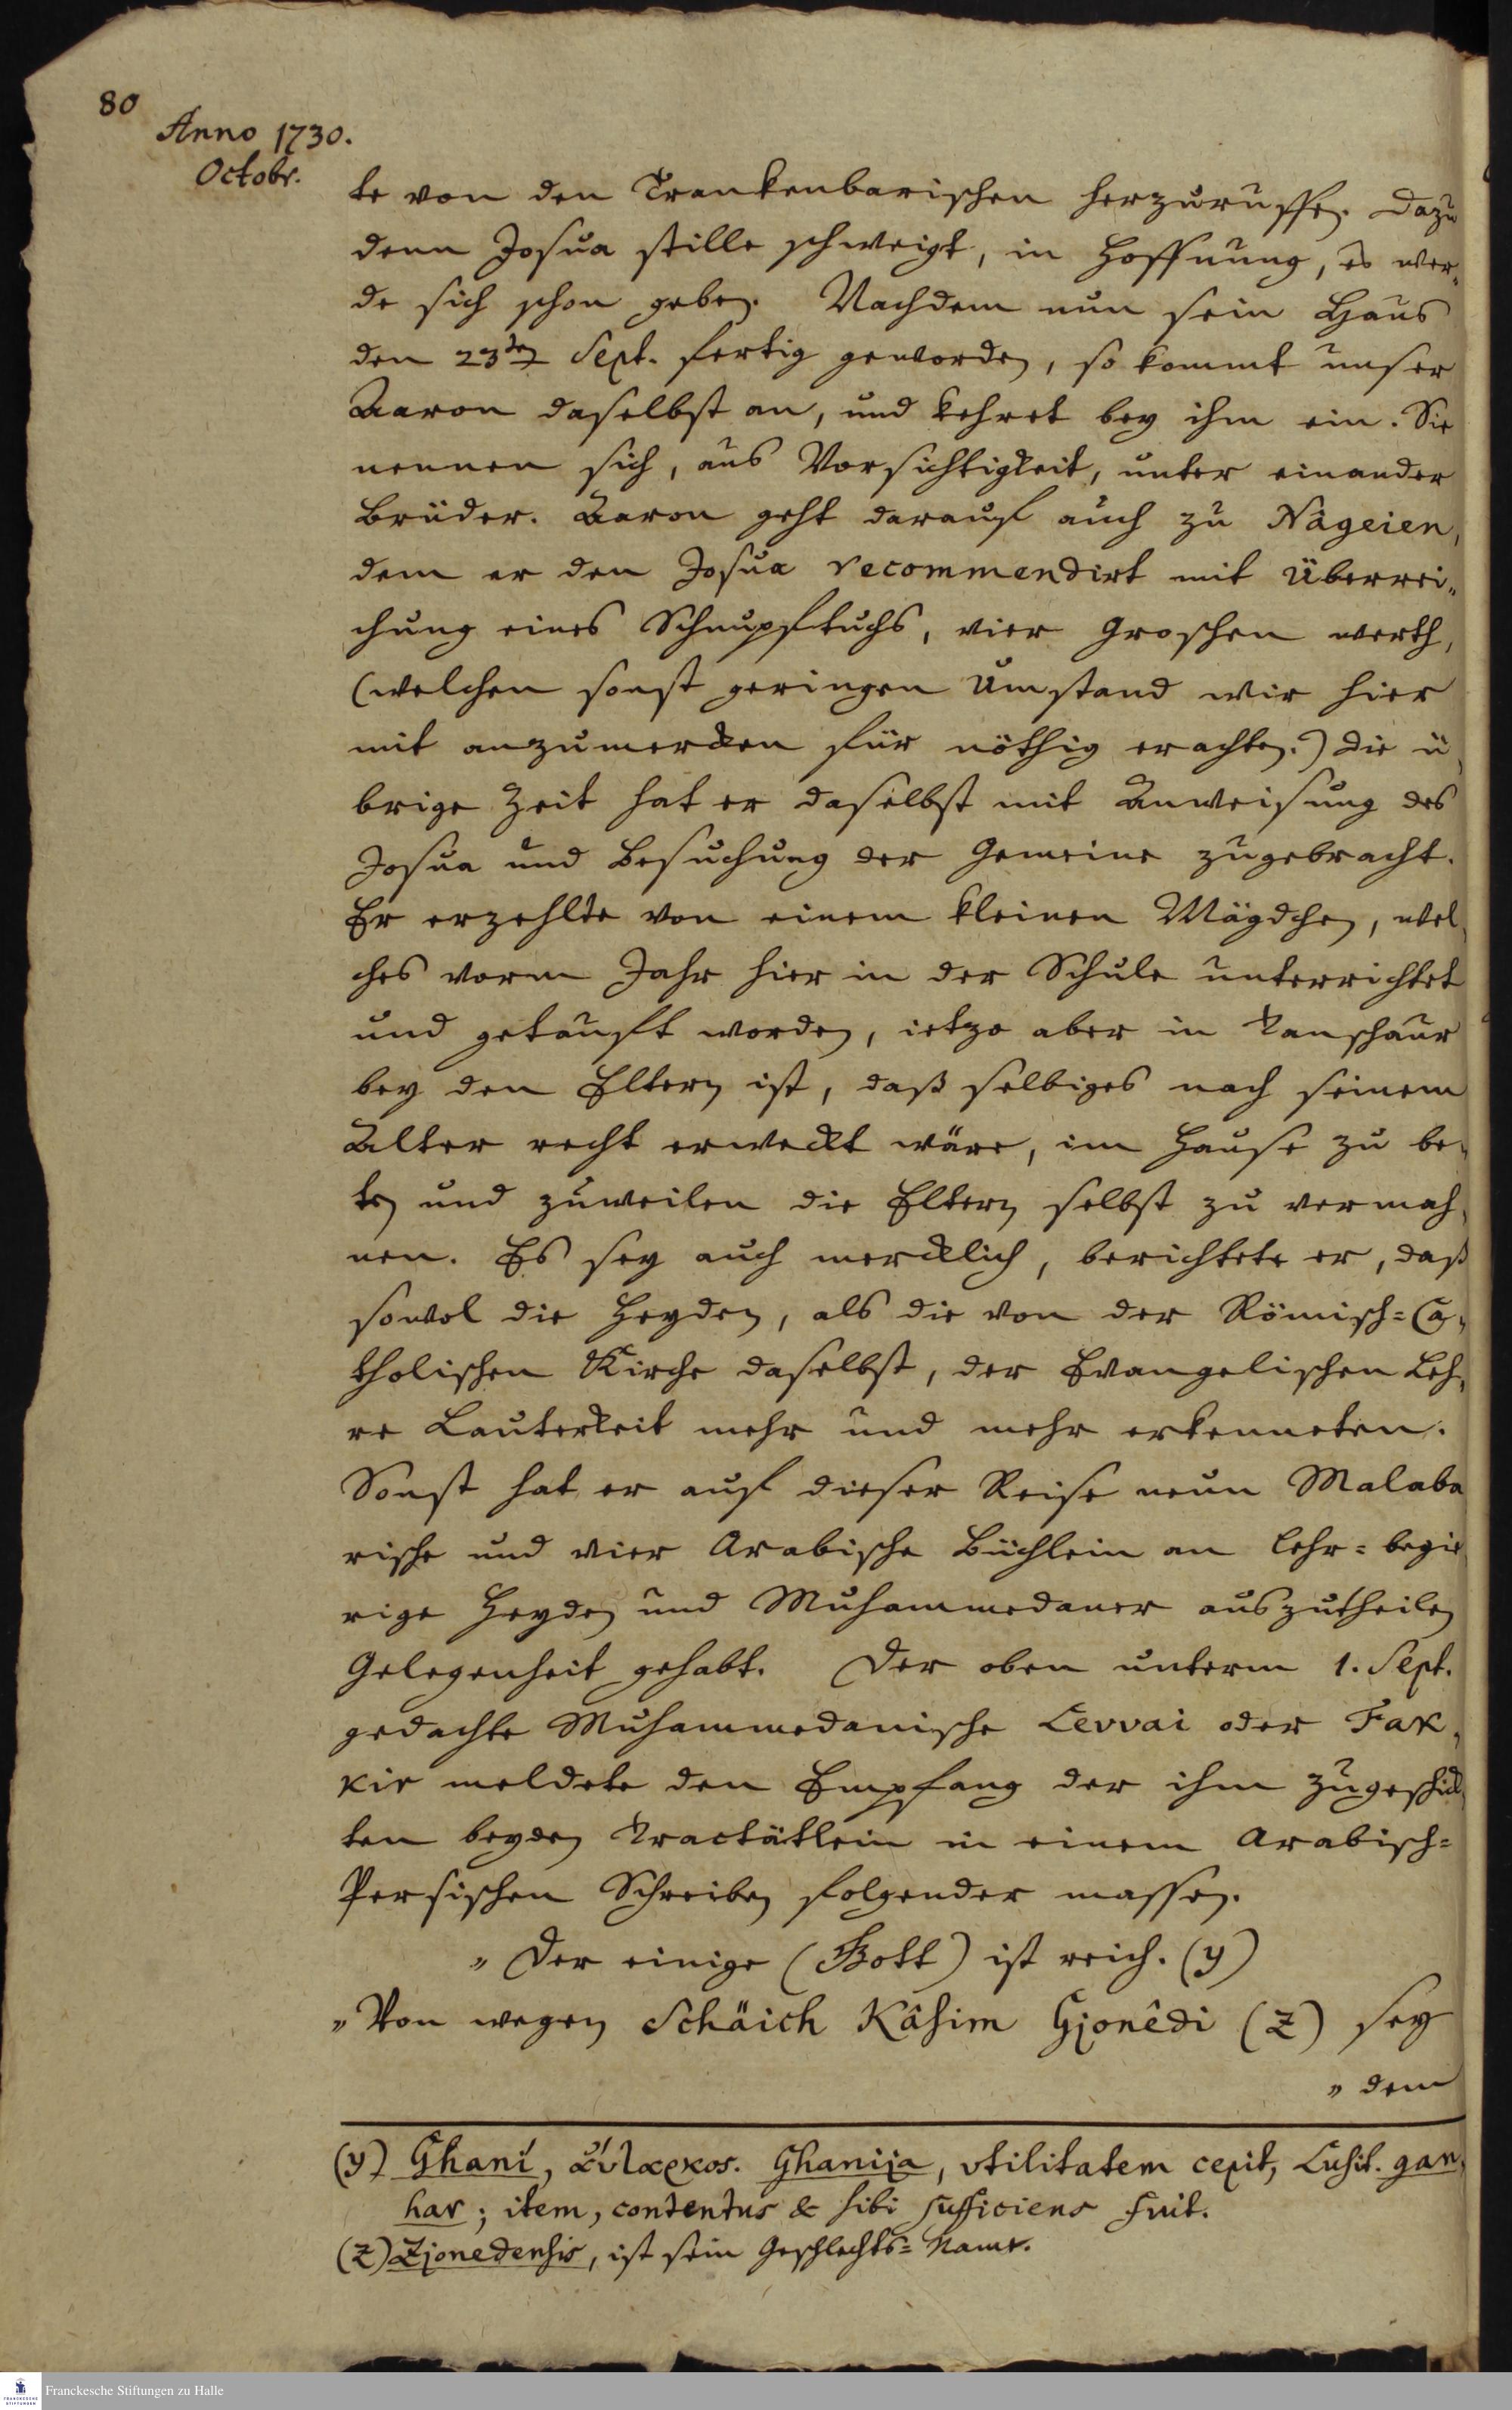 80
Anno 1730.
Octobr.
te von den Trankenbarischen herzuruffen. Dazu
denn Josua stille schweigt, in Hoffnung, es wer„
de sich schon geben. Nachdem nun sein Haus
den 23ten Sept. fertig geworden, so kommt unser
Aaron daselbst an, und kehret bey ihm ein. Sie
nennen sich, aus Vorsichtigkeit, unter einander
Brüder. Aaron geht darauf auch zu Nâgeien,
dem er den Josua recommendirt mit Überrei„
chung eines Schnupftuchs, vier Groschen werth,
(welchen sonst geringen Umstand wir hier
mit anzumercken für nöthig erachten.) Die ü„
brige Zeit hat er daselbst mit Anweisung des
Josua und Besuchung der Gemeine zugebracht.
Er erzehlte von einem kleinen Mägdchen, wel„
ches vorm Jahr hier in der Schule unterrichtet
und getauft worden, ietzo aber in Tanschaur
bey den Eltern ist, daß selbiges nach seinem
Alter recht erweckt wäre, im Hause zu be„
ten und zuweilen die Eltern selbst zu vermah„
nen. Es sey auch mercklich, berichtete er, daß
sowol die Heyden, als die von der Römisch=Ca„
tholischen Kirche daselbst, der Evangelischen Leh„
re Lauterkeit mehr und mehr erkenneten.
Sonst hat er auf dieser Reise neun Malaba
rische und vier Arabische Büchlein an lehr=begie
rige Heyden und Muhammedaner auszutheilen
Gelegenheit gehabt. Der oben unterm 1. Sept.
gedachte Muhammedanische Levvai oder Fak„
kir meldete den Empfang der ihm zugeschick„
ten beyden Tractätlein in einem Arabisch=
Persischen Schreiben folgender massen.
„ Der einige (Gott) ist reich. (y)
„ Von wegen Schäich Kâsim Gjonêdi (z) sey
„ dem
(y) Ghaní, ἀύλαρκος. Ghanija, vtilitatem cepit, Lusit. gan„
har; item, contentus & sibi sufficiens fuit.
(z) Zjonedensis, ist sein Geschlechts=Name.
Franckesche Stiftungen zu Halle